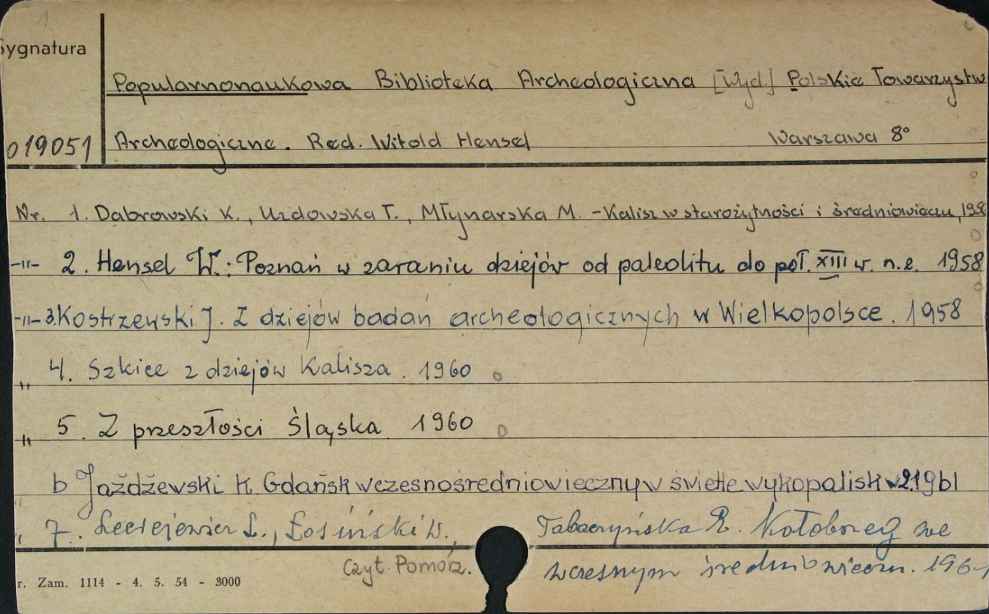 Sygnatura
Popularnonaukowa Biblioteka Archeologiczna [Wyd.] Polskie Towarzystw
019051 Archeologiczne. Red. Witold Hensel Warszawa 8°
Nr. 1. Dabrowski K., Uzdowska T., Młynarska M. - Kalisz w starożytności i średniowieczu, 195
-"- 2. Hensel W.: Poznań w zaraniu dziejów od paleolitu do poł. XIII w. n.e. 1958
-"- 3. Kostrzewski J. Z dziejów badań archeologicznych w Wielkopolsce. 1958
" 4. Szkice z dziejów Kalisza. 1960
" 5. Z przeszłości Śląska 1960
b Jażdżewski K. Gdańsk wczesnośredniowieczny w świetle wykopalisk 1961
" 7. Leciejewicz L., Łosiński W., Tabaczyńska E. Kołobrzeg we
wczesnym średniowieczu. 1961
Czyt. Pomoc.
r. Zam. 1114 - 4. 5. 54 - 3000